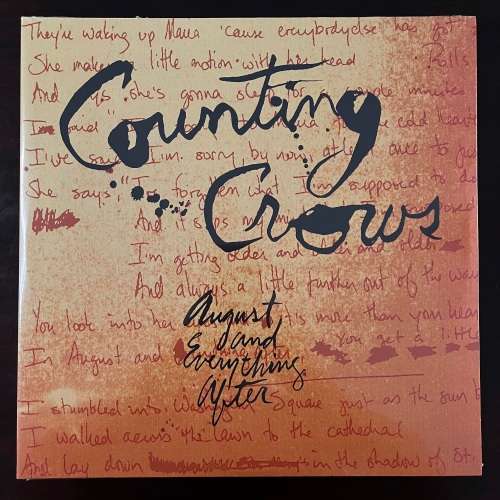 They're waking up Maria 'cause everybody else has got
She makes a little motion with her head
Rolls
And says she's gonna sleep for a couple minutes
Counting
I've say I'm sorry, by now, at least once to just
She says, "I'm forgotten what I'm supposed to do
Crows
And it slips my mind
I'm getting older and older and older
And always a little further out of the way
August
and
Everything
After
You look into her it's more than your heart
In August and
You get a little
I stumbled into Washington Square just as the sun b
I walked across the lawn to the cathedral
And lay down in the shadow of St.